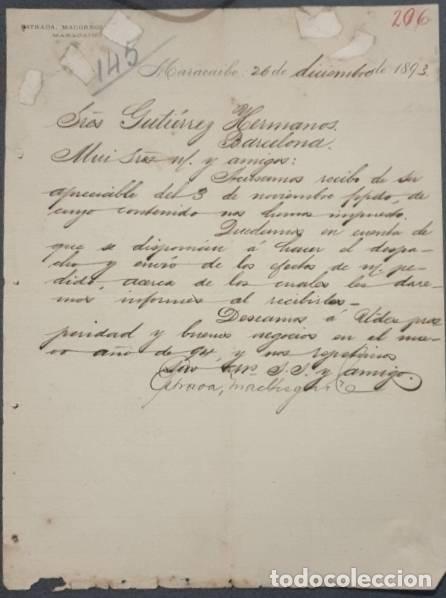 206
ESTRADA, MACGREGOR
MARACAIBO
145
Maracaibo, 26 de diciembre de 1893.
Sres Gutiérrez Hermanos.
Barcelona.
Mui Sres n/. y amigos:
Acusamos recibo de su
apreciable del 3 de noviembre ppdo, de
cuyo contenido nos hemos impuesto.
Quedamos en cuenta de
que se disponían á hacer el despa-
cho y envío de los efectos de n/. pe-
dido, acerca de los cuales les dare-
mos informes al recibirlos-
Deseamos á Uds pros
peridad y buenos negocios en el nue-
vo año de 94, y nos repetimos
S.S. y amigo.
todocoleccion.net